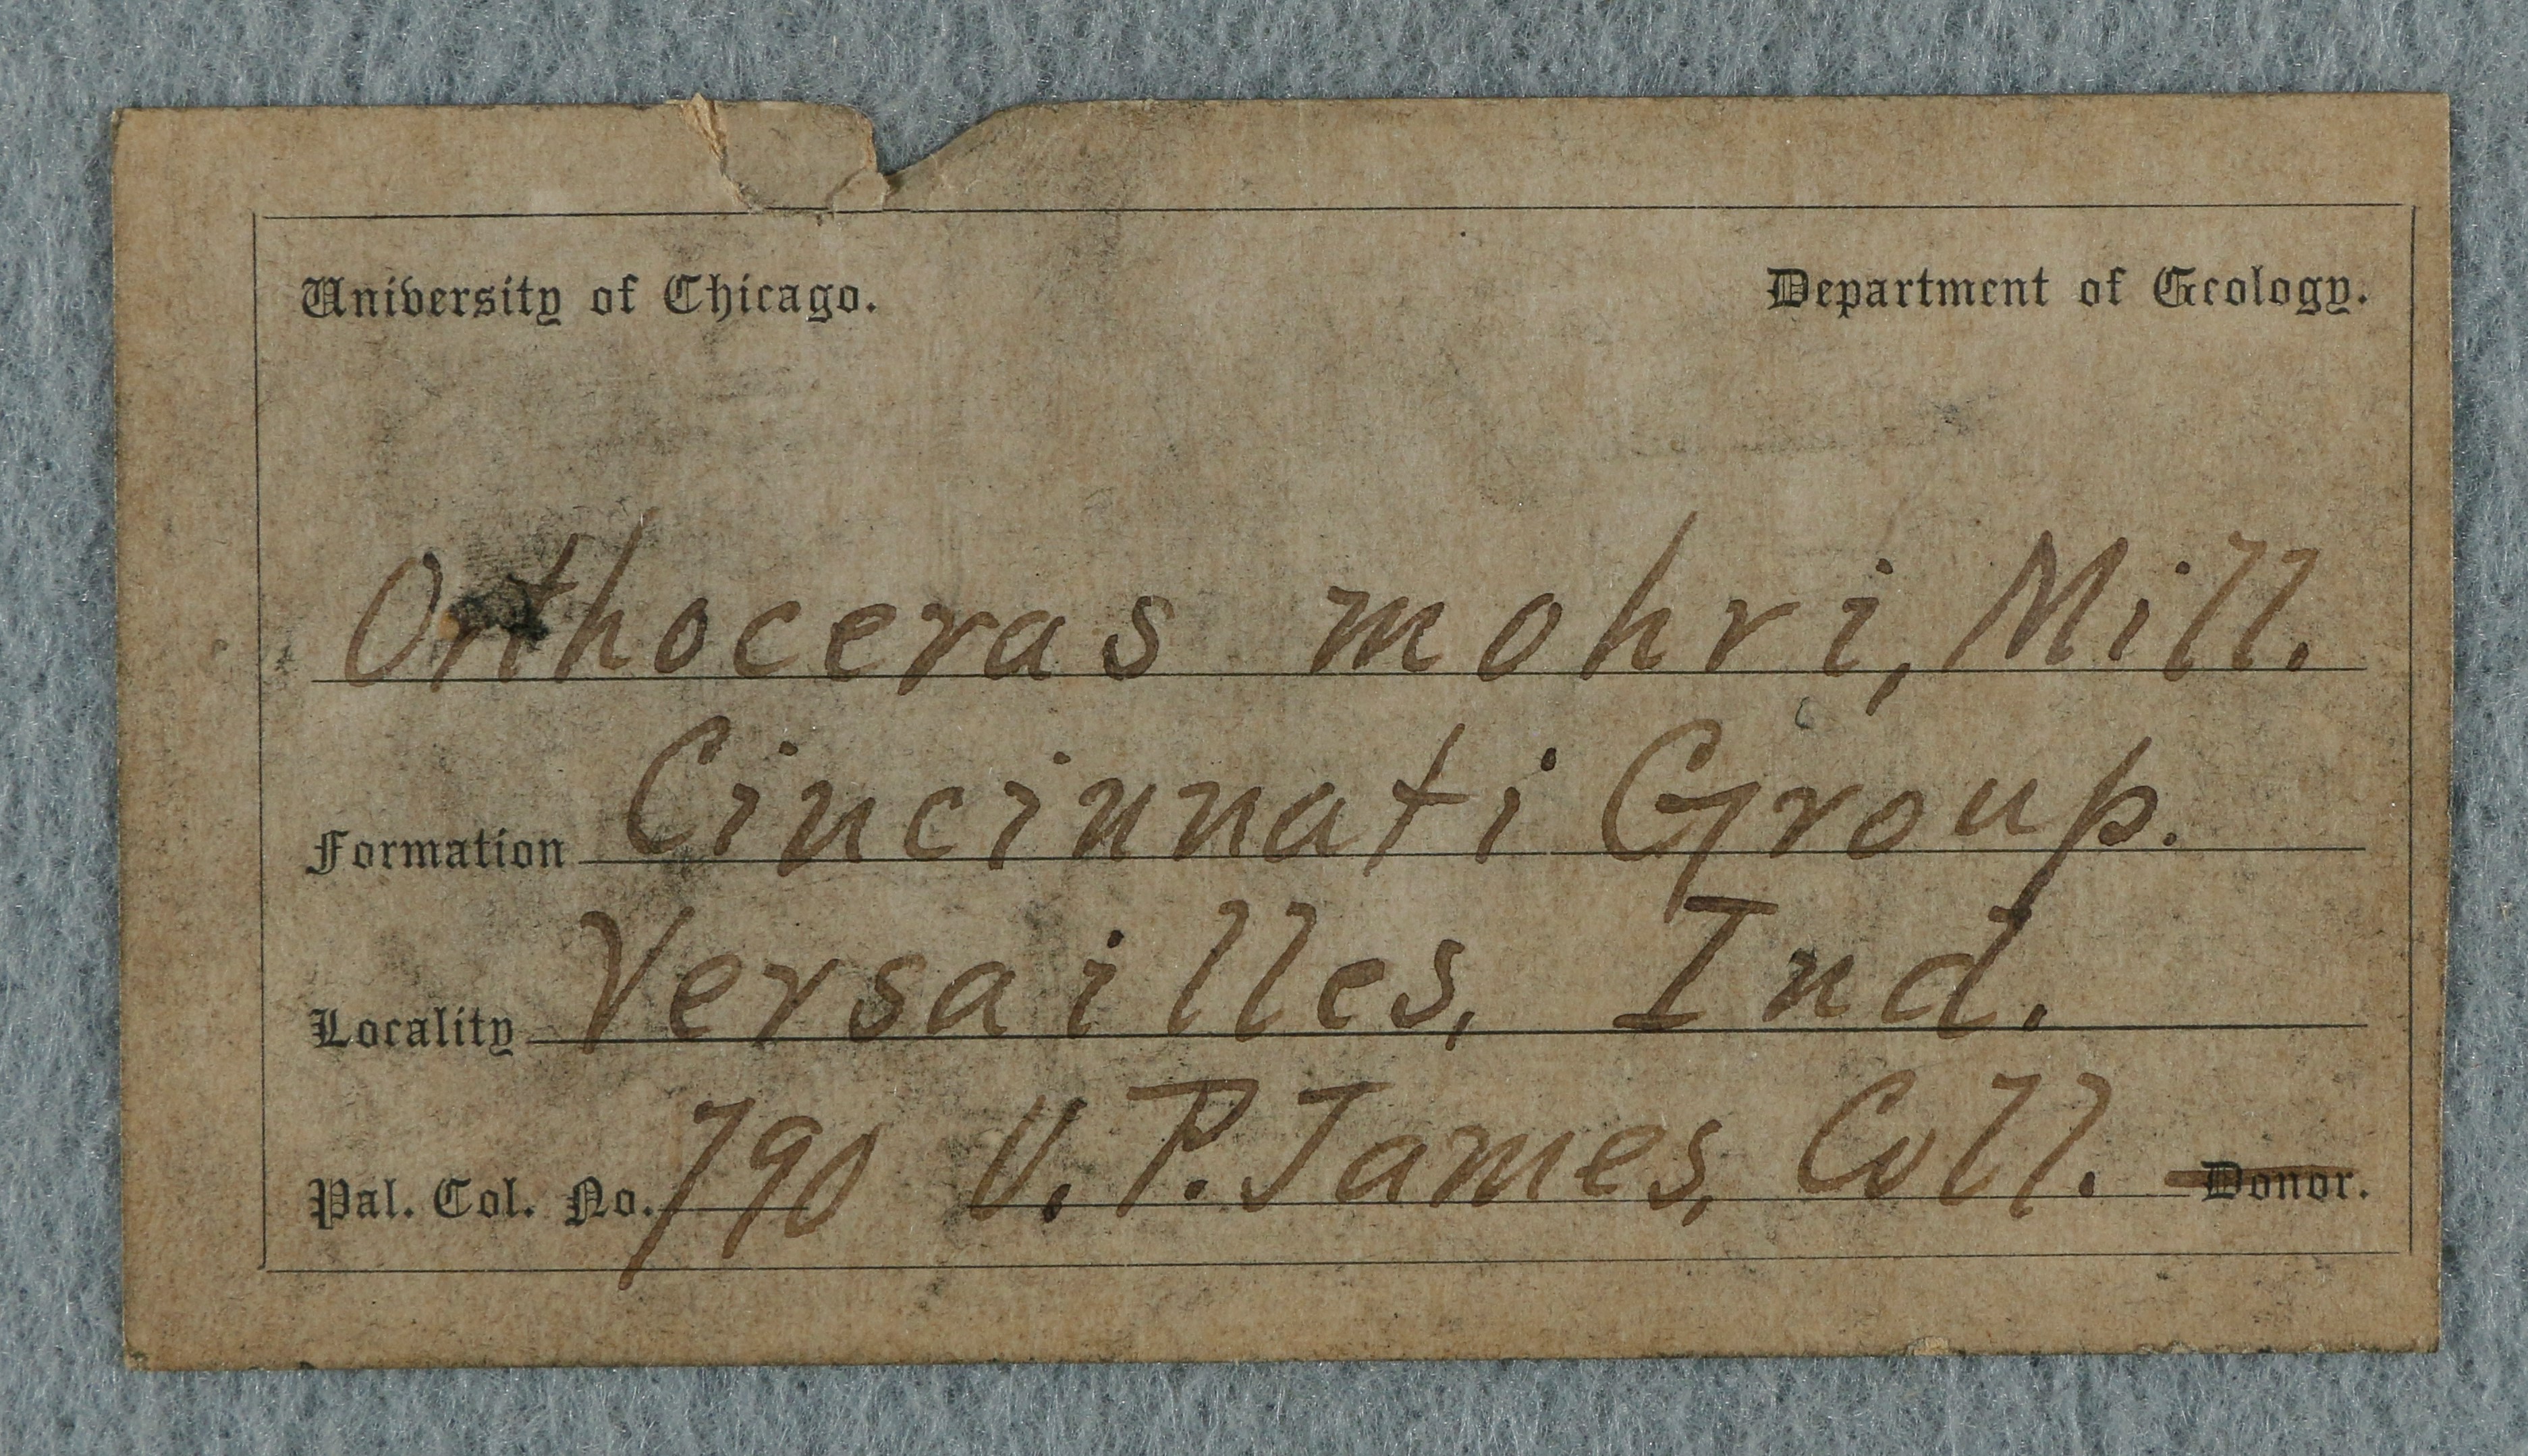 University of Chicago. Department of Geology.
Orthoceras mohri, Mill.
Formation Cincinnati Group.
Locality Versailles, Ind.
Pal. Col. No. 790 U. P. James, Coll. Donor.